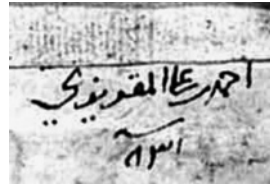 احمد بن علي المقريزي
سنة ٨٣١